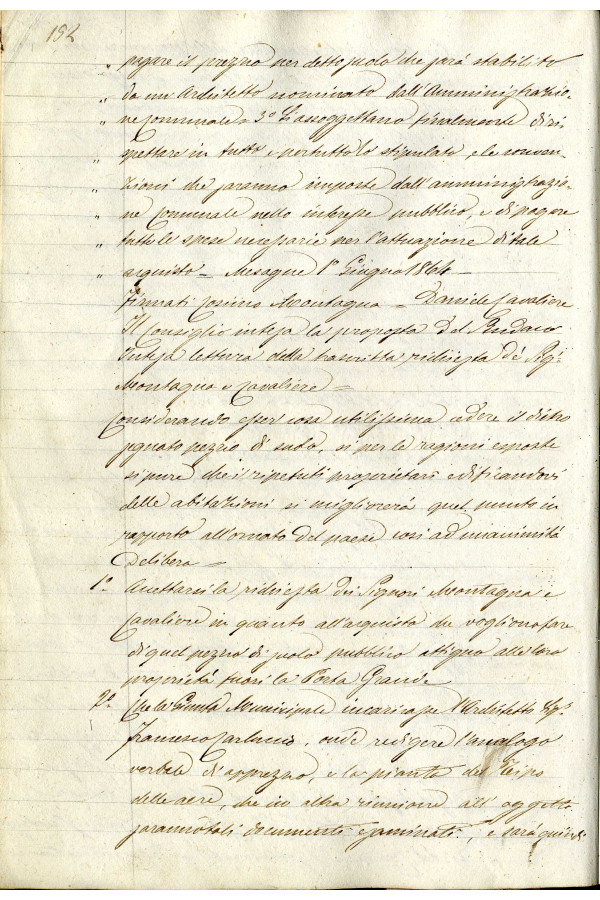 152
„ pagare il prezzo per detto suolo che sarà stabilito
„ da un Architetto nominato dall'Amministrazio-
„ ne Comunale = 3º Si assoggettano finalmente di ri-
„ spettare in tutto e per tutto lo stipulato, e le conven-
„ zioni che saranno imposte dall'amministrazio-
„ ne Comunale nello interesse pubblico, e di pagare
„ tutte le spese necessarie per l'attuazione di tale
„ acquisto = Mesagne 1º Giugno 1864 =
Firmati Cosimo Montagna = Daniele Cavaliere
Il Consiglio intesa la proposta del Sindaco
Intesa lettura della trascritta richiesta de' Sigi
Montagna e Cavaliere =
Considerando esser cosa utilissima cedere il dietro
segnato pezzo di suolo, si per le ragioni esposte
si pure che i ripetuti proprietarii edificandovi
delle abitazioni si migliorerà quel punto in
rapporto all'ornato del paese così ad unanimità
Delibera =
1º Accettarsi la richiesta dei Signori Montagna e
Cavaliere in quanto all'acquisto che vogliono fare
di quel pezzo di suolo pubblico attiguo alle loro
proprietà fuori la Porta Grande
2º Che la Giunta Municipale incaricasse l'Architetto Sigr
Francesco Carluccio, onde redigere l'analogo
verbale di apprezzo, e la pianta del
delle aere, che in altra riunione all'oggetto
saranno tali documenti esaminati, e sarà quindi